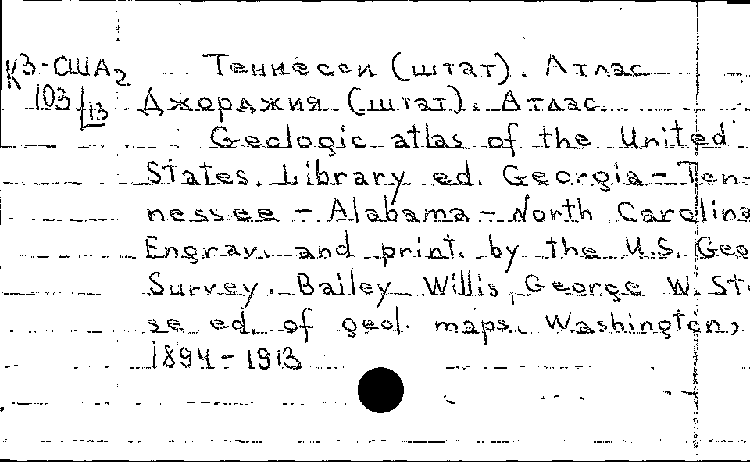 К3-США2 Теннесси (штат). Атлас
103/13 Джорджия (штат). Атлас.
Geologic atlas of the United
States. Library ed. Georgia - Ten-
nessee - Alabama - North Carolina
Engrav. and print. by the U.S. Geo
Survey. Bailey Willis, George W. St
se ed. of geol. maps. Washington,
1894 - 1913